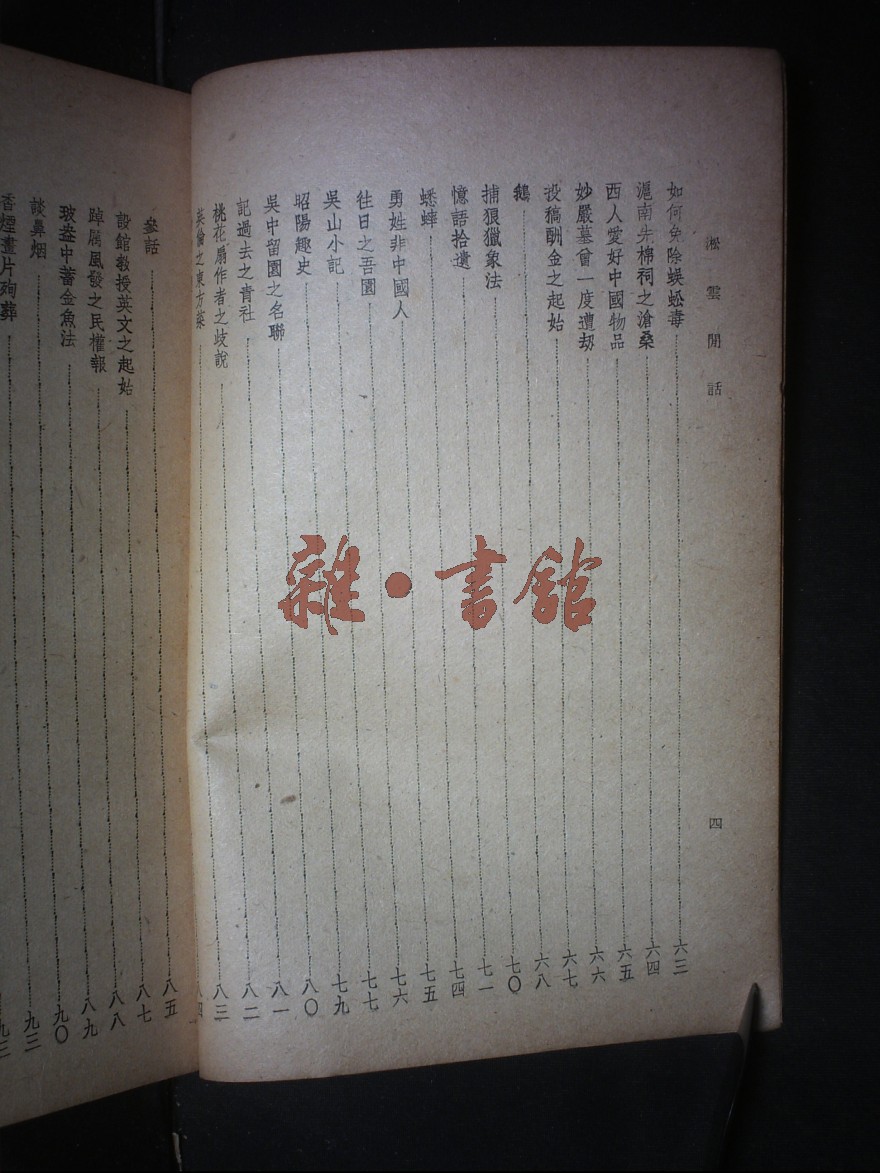 淞雲閒話
四
如何免除蜈蚣毒 六三
滬南先棉祠之滄桑 六四
西人愛好中國物品 六五
妙嚴墓曾一度遭劫 六六
投稿酬金之起始 六七
鵝 六八
捕狼獵象法 七〇
憶語拾遺 七一
蟋蟀 七四
勇姓非中國人 七五
往日之吾園 七六
吳山小記 七七
昭陽趣史 七九
吳中留園之名聯 八〇
記過去之青社 八一
桃花扇作者之歧說 八二
英倫之東方菜 八三
八四
參話 八五
設館教授英文之起始 八七
踔厲風發之民權報 八八
玻盎中蓄金魚法 八九
談鼻烟 九〇
香煙畫片殉葬 九三
雜·書館